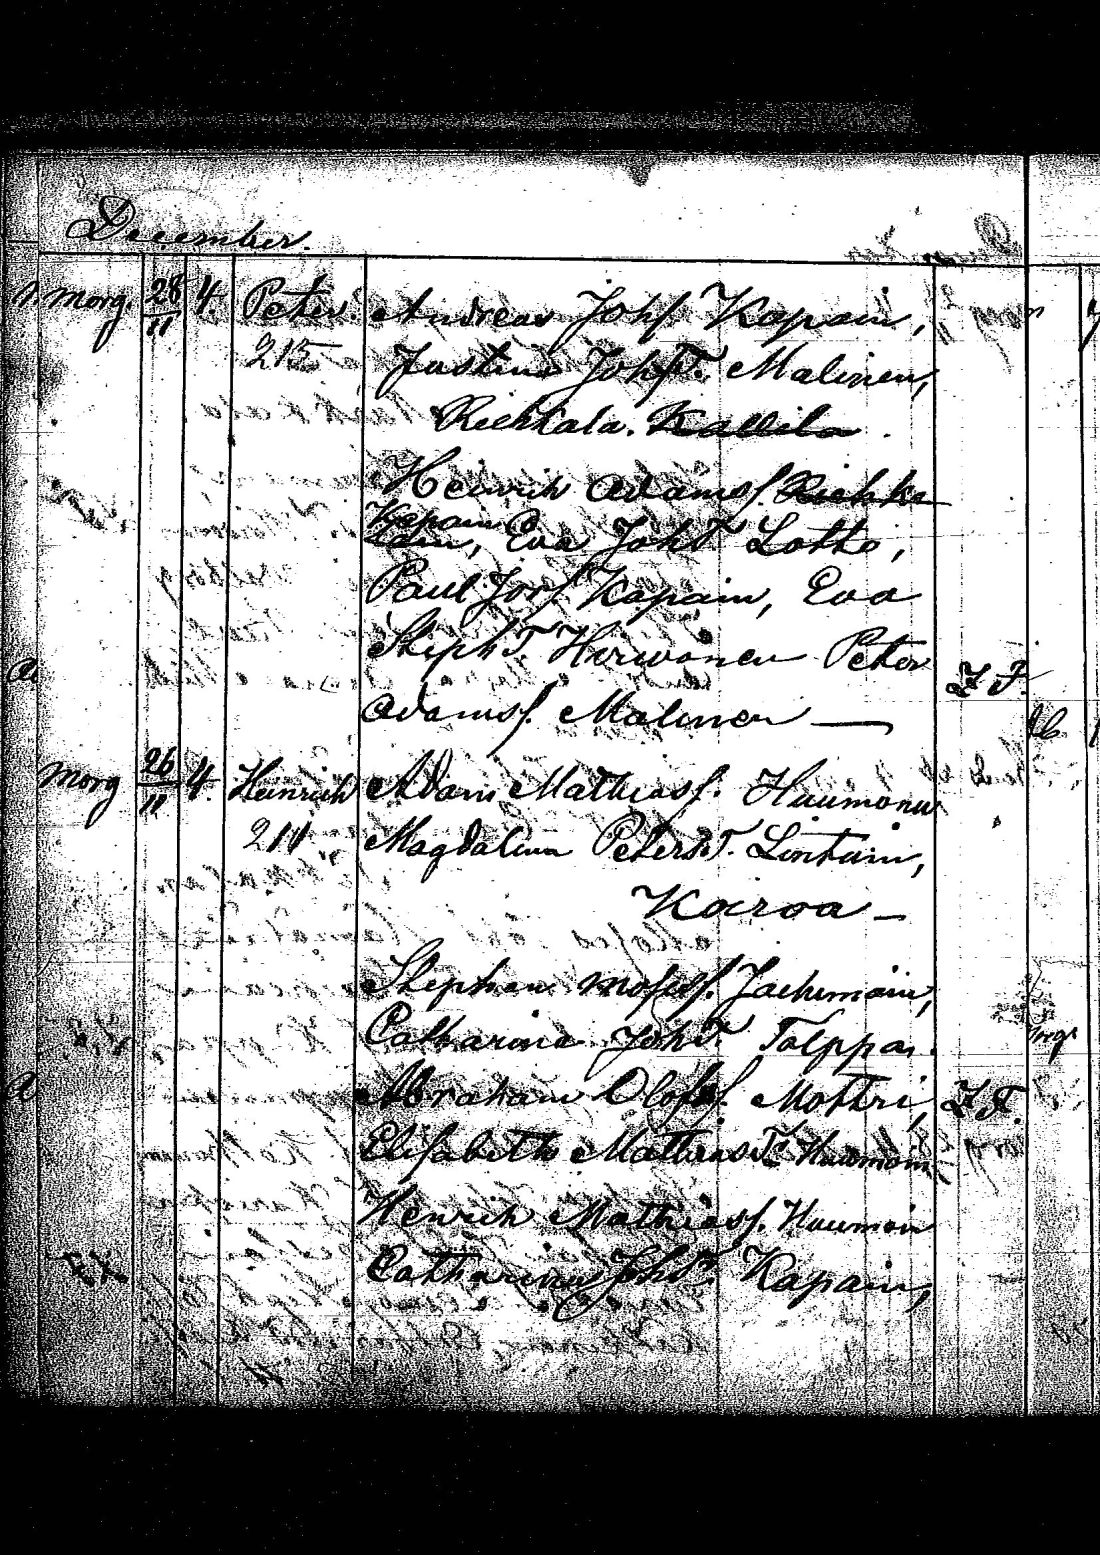 December.
Morg. 28/11 4. Peter. Andreas Johs. Kapain,
215 Justina JohsT. Malinen,
Riehkala. Kallila
Heinrich Adamsf. Riehka
Kapain
lain, Eva JohsT. Lotto,
Paul Josf. Kapain, Eva
StephT. Hirwonen Peter
Adamsf. Malinen — Z F.
Morg 26/11 4. Heinrich Adam Mathiasf. Haumonen
211 Magdalena PetersT. Lintain,
Karoa —
Stephan Mosesf. Jachimain,
Catharina JohsT. Tolppa,
Abraham Olofsf. Mottri, Z F.
Elisabeth MathiasT. Haumoin
Henrich Mathiasf. Haumoin
Catharina JohsT. Kapain,